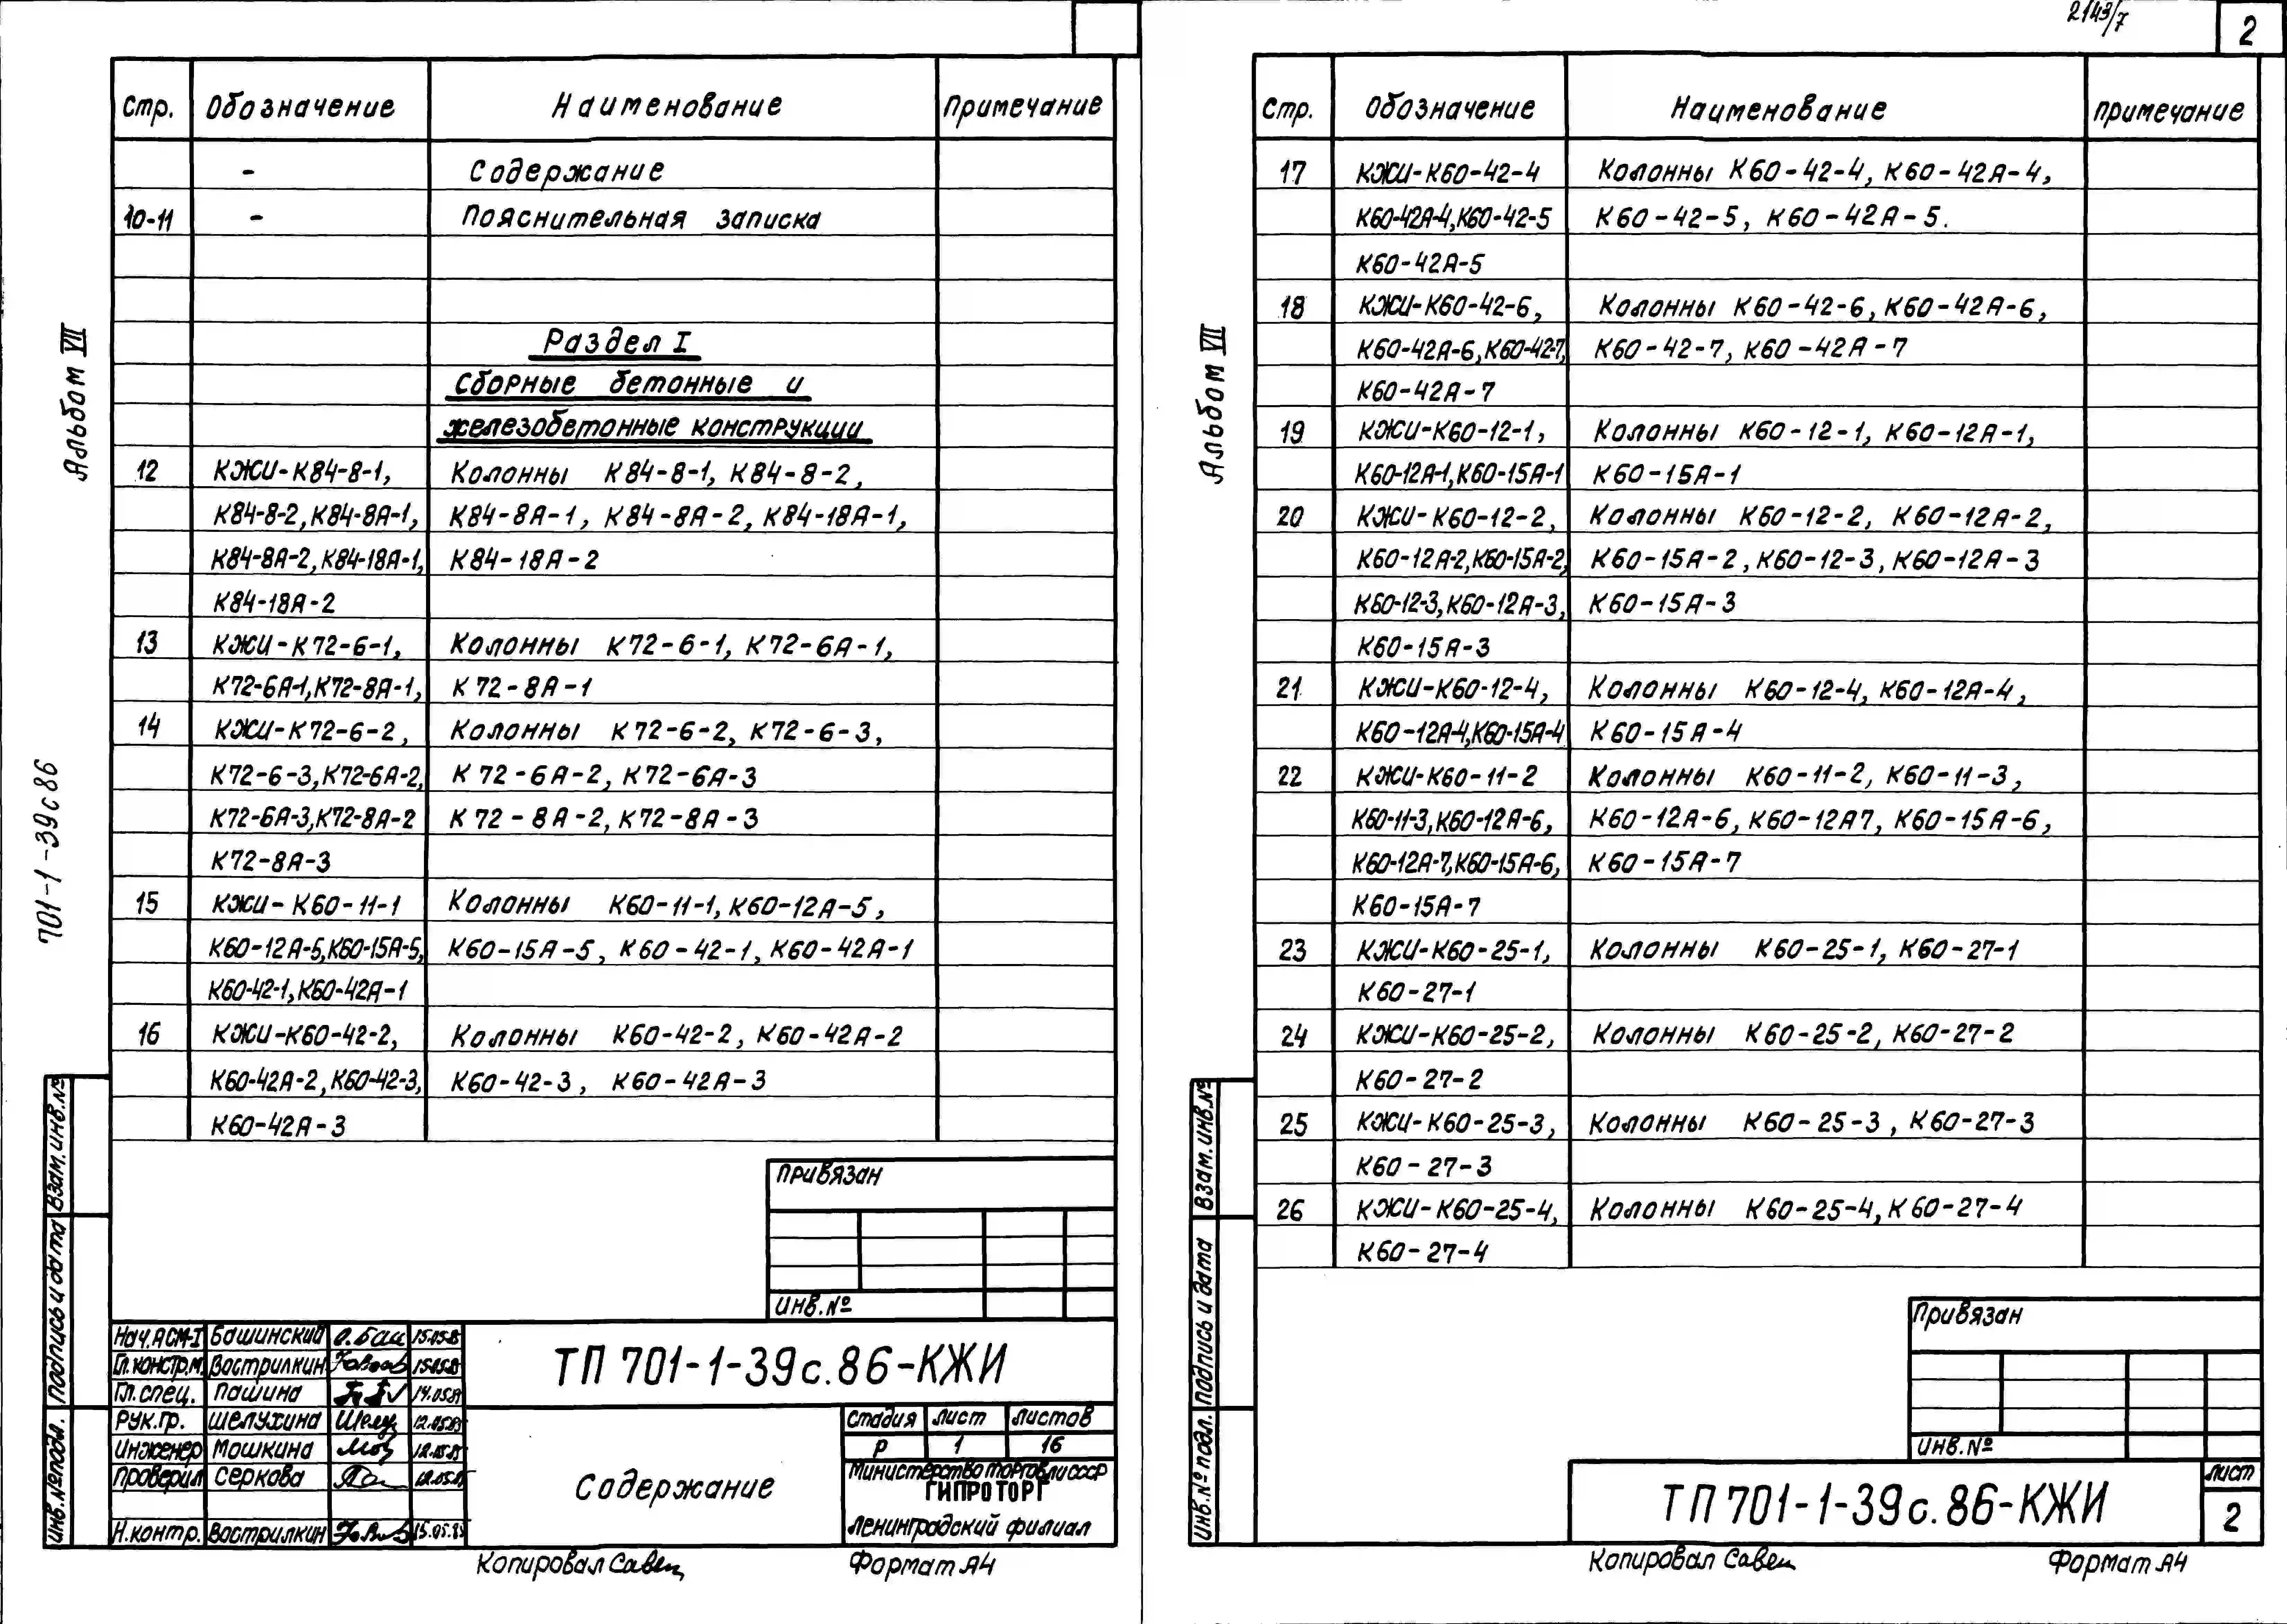 Альбом VII
701-1-39с86
Стр. Обозначение Наименование Примечание
- Содержание
10-11 - Пояснительная записка
Раздел I
Сборные бетонные и
железобетонные конструкции
12 КЖИ-К84-8-1, Колонны К84-8-1, К84-8-2,
К84-8-2, К84-8А-1, К84-8А-1, К84-8А-2, К84-18А-1,
К84-8А-2, К84-18А-1, К84-18А-2
К84-18А-2
13 КЖИ-К72-6-1, Колонны К72-6-1, К72-6А-1,
К72-6А-1, К72-8А-1, К72-8А-1
14 КЖИ-К72-6-2, Колонны К72-6-2, К72-6-3,
К72-6-3, К72-6А-2, К72-6А-2, К72-6А-3
К72-6А-3, К72-8А-2 К72-8А-2, К72-8А-3
К72-8А-3
15 КЖИ-К60-11-1 Колонны К60-11-1, К60-12А-5,
К60-12А-5, К60-15А-5, К60-15А-5, К60-42-1, К60-42А-1
К60-42-1, К60-42А-1
16 КЖИ-К60-42-2, Колонны К60-42-2, К60-42А-2
К60-42А-2, К60-42-3, К60-42-3, К60-42А-3
К60-42А-3
Привязан
Инв.№
Взам.инв.№
Подпись и дата
Инв.№ подл.
Нач.АСМ-I Башинский 15.05.85
Гл.констр.м. Вострилкин 15.05.85
Гл.спец. Пашина
Рук.гр. Шелухина 12.05.85
Инженер Мошкина
Проверил Серкова
Н.контр. Вострилкин 15.05.85
ТП 701-1-39с.86-КЖИ
Содержание
Стадия Лист Листов
Р 1 16
Министерство торговли СССР
ГИПРОТОРГ
Ленинградский филиал
Копировал Савец Формат А4
2143/7
2
Альбом VII
Стр. Обозначение Наименование Примечание
17 КЖИ-К60-42-4 Колонны К60-42-4, К60-42А-4,
К60-42А-4, К60-42-5 К60-42-5, К60-42А-5.
К60-42А-5
18 КЖИ-К60-42-6, Колонны К60-42-6, К60-42А-6,
К60-42А-6, К60-42-7, К60-42-7, К60-42А-7
К60-42А-7
19 КЖИ-К60-12-1, Колонны К60-12-1, К60-12А-1,
К60-12А-1, К60-15А-1 К60-15А-1
20 КЖИ-К60-12-2, Колонны К60-12-2, К60-12А-2,
К60-12А-2, К60-15А-2, К60-15А-2, К60-12-3, К60-12А-3
К60-12-3, К60-12А-3, К60-15А-3
К60-15А-3
21 КЖИ-К60-12-4, Колонны К60-12-4, К60-12А-4,
К60-12А-4, К60-15А-4 К60-15А-4
22 КЖИ-К60-11-2 Колонны К60-11-2, К60-11-3,
К60-11-3, К60-12А-6, К60-12А-6, К60-12А7, К60-15А-6,
К60-12А-7, К60-15А-6, К60-15А-7
К60-15А-7
23 КЖИ-К60-25-1, Колонны К60-25-1, К60-27-1
К60-27-1
24 КЖИ-К60-25-2, Колонны К60-25-2, К60-27-2
К60-27-2
25 КЖИ-К60-25-3, Колонны К60-25-3, К60-27-3
К60-27-3
26 КЖИ-К60-25-4, Колонны К60-25-4, К60-27-4
К60-27-4
Привязан
Инв.№
Взам.инв.№
Подпись и дата
Инв.№ подл.
ТП 701-1-39с.86-КЖИ
Лист
2
Копировал Савец Формат А4